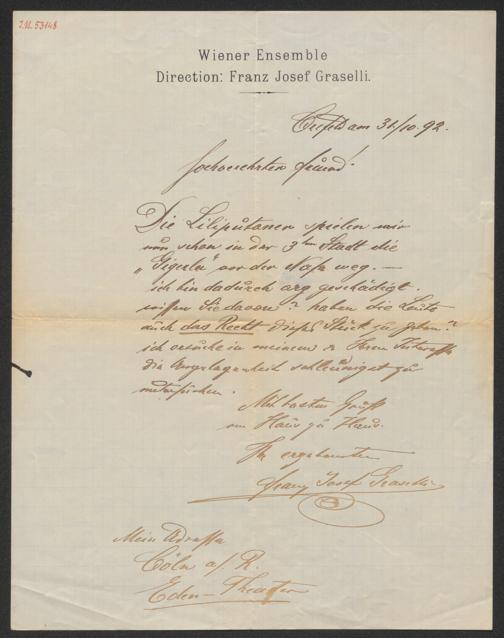 I.N. 53148
Wiener Ensemble
Direction: Franz Josef Graselli.
Crefeld am 31/10. 92.
Hochverehrter Freund!
Die Liliputaner spielen mir
nun schon in der 3ten Stadt die
„Gigerln“ vor der Nase weg. —
ich bin dadurch arg geschädigt.
wissen Sie davon? haben die Leute
auch das Recht dieses Stück zu geben?
ich ersuche in meinem u. Ihrem Interesse
die Angelegenheit schleunigst zu
untersuchen.
Mit besten Gruß
von Haus zu Haus.
Ihr ergebenster
Franz Josef Graselli
Meine Adresse
Cöln a/R.
Eden-Theater